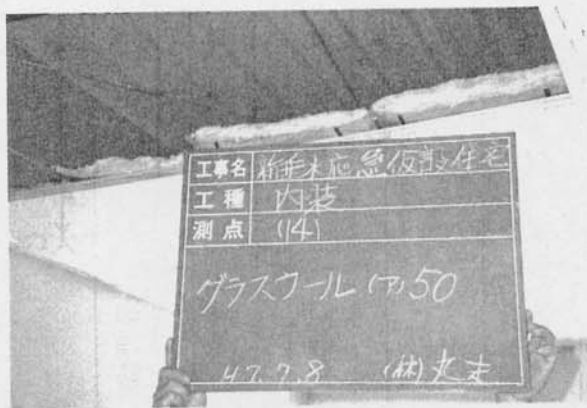 工事名 応急仮設住宅
工種 内装
測点 (14)
グラスウール(ア)50
47.7.8 (株)丸末